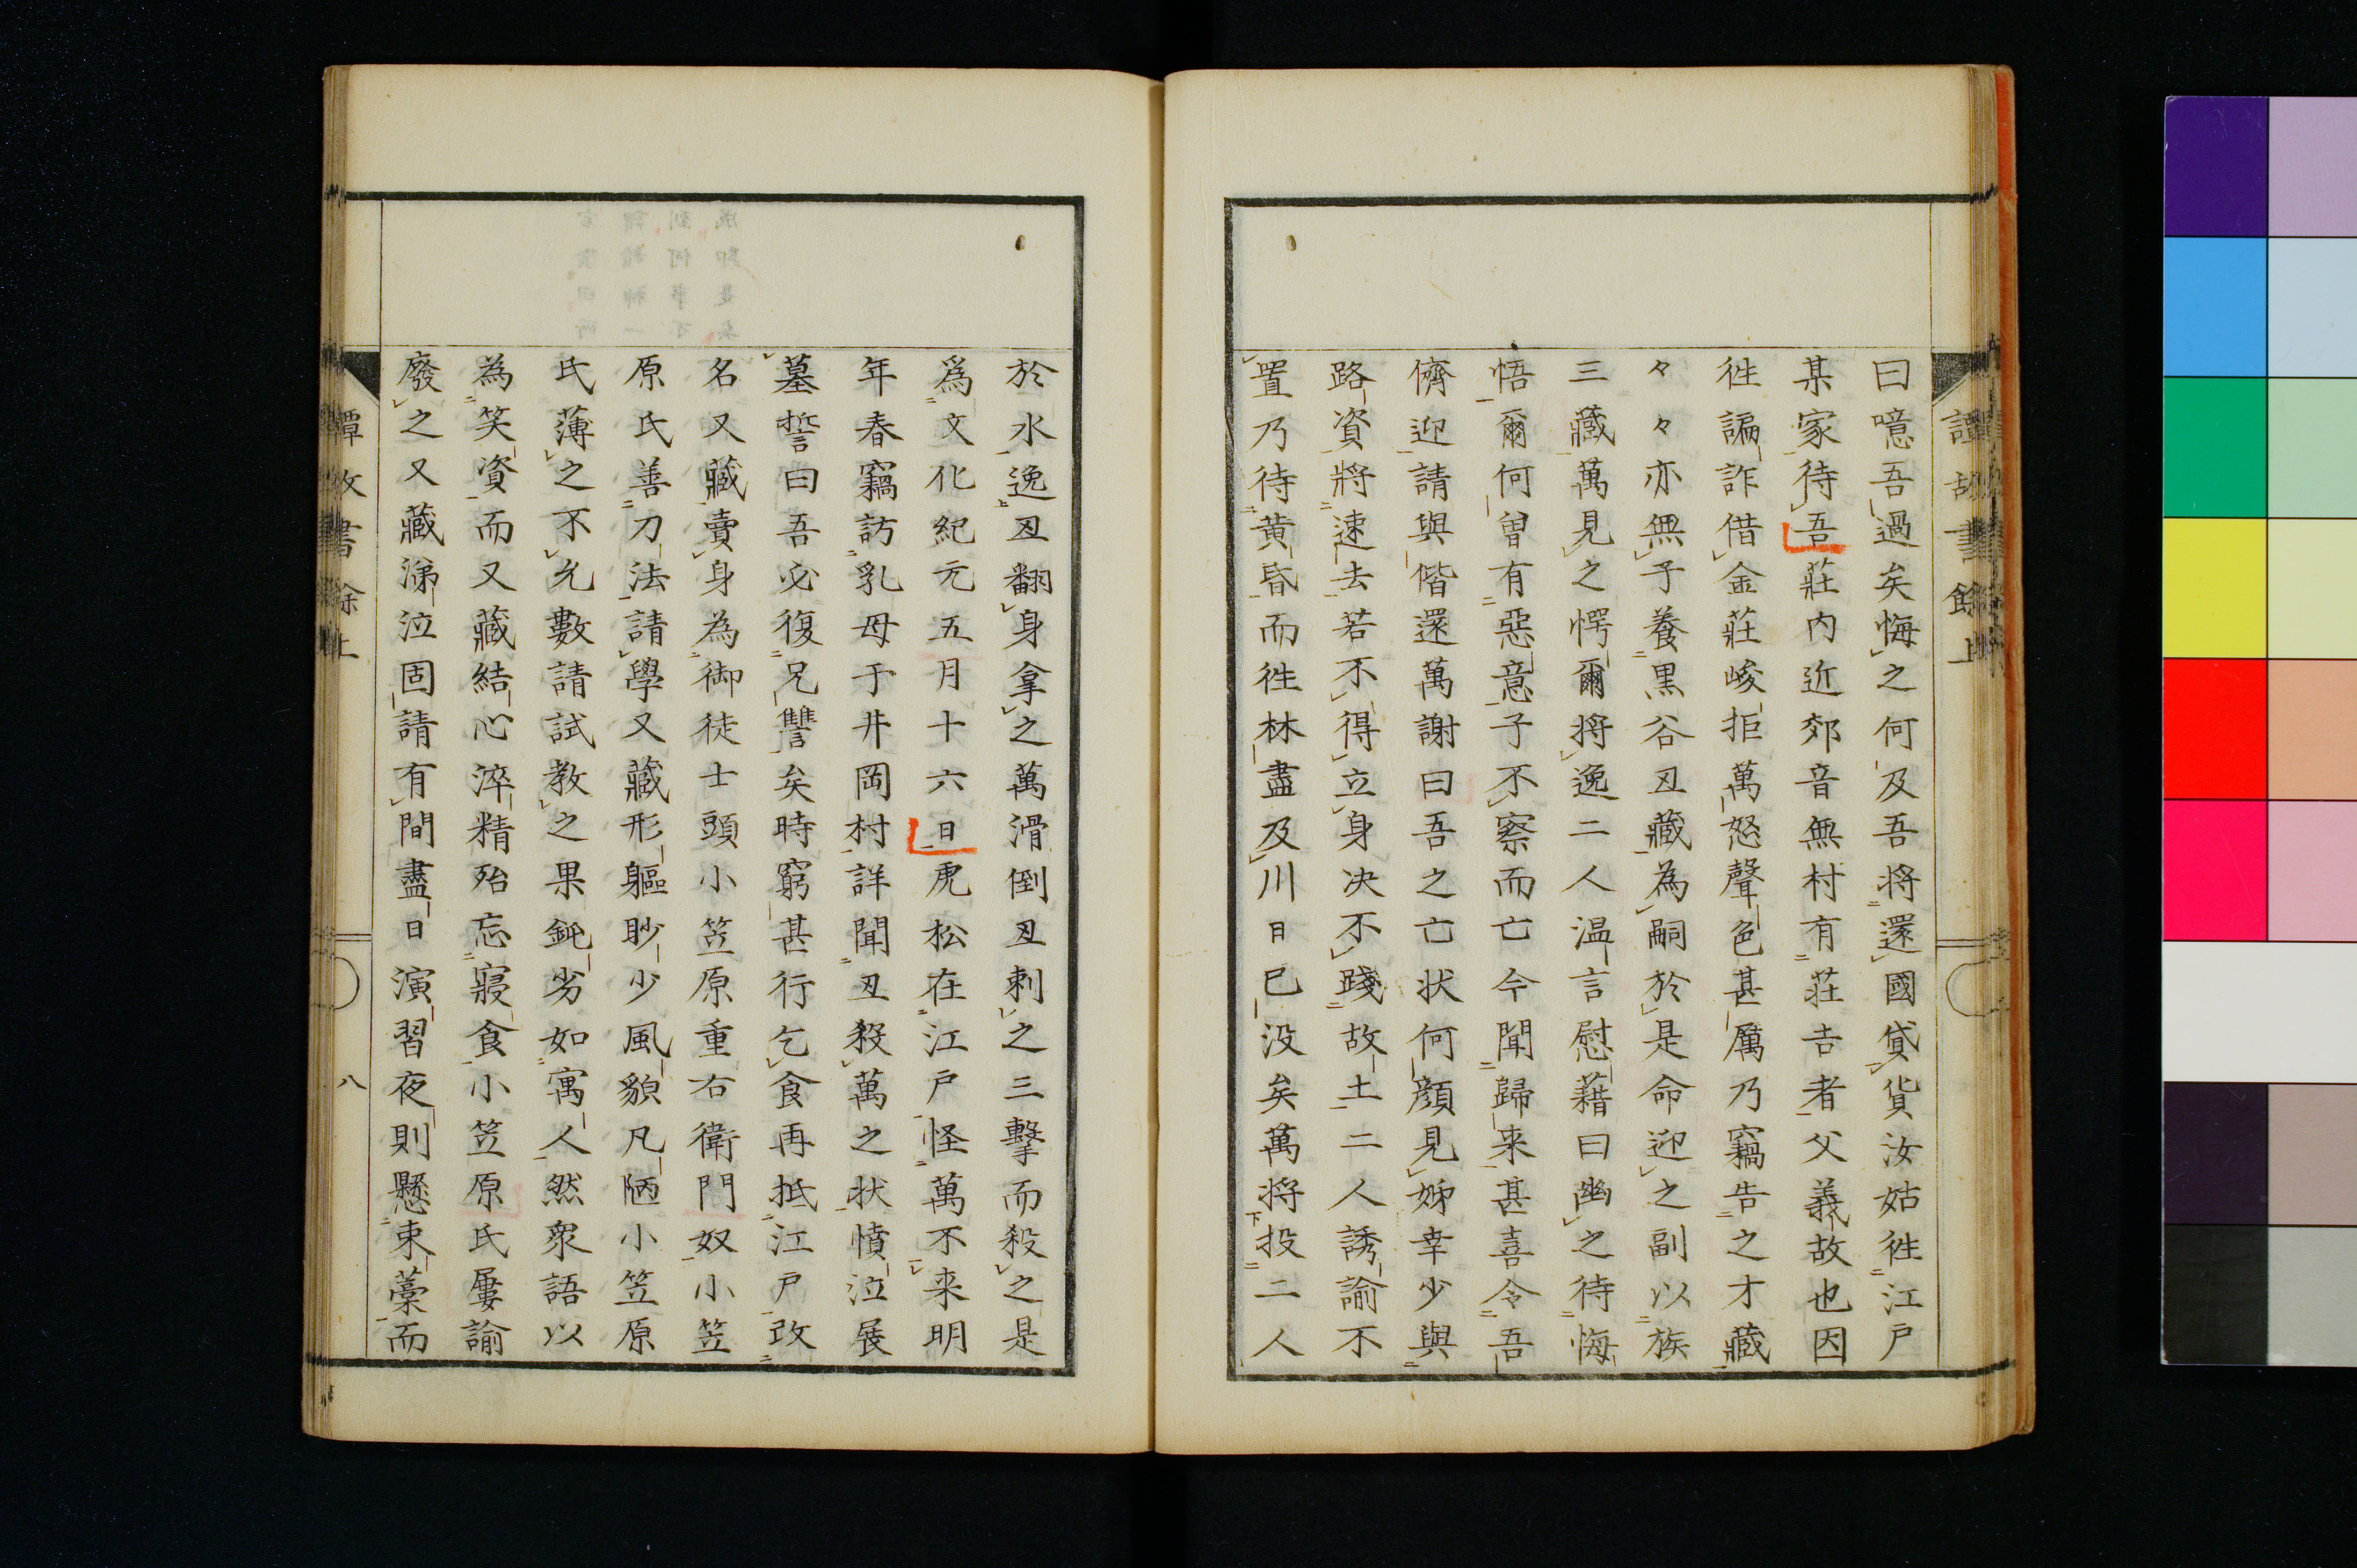 曰噫吾過矣悔之何及吾将還國貸貨汝姑徃江戸
某家待吾莊内近郊音無村有荘吉者父義故也因
徃諞詐借金莊峻拒萬怒聲色甚厲乃竊告之才藏
々々亦無子養黒谷丑藏為嗣於是命迎之副以族
三藏萬見之愕爾将逸二人温言慰藉曰幽之待悔
悟爾何曽有惡意子不察而亡今聞歸来甚喜令吾
儕迎請與偕還萬謝曰吾之亡状何顔見姊幸少與
路資將速去若不得立身决不踐故土二人誘諭不
置乃待黄昏而徃林盡及川日已没矣萬将投二人
於水逸丑翻身拿之萬滑倒丑刺之三擊而殺之是
爲文化紀元五月十六日虎松在江戸怪萬不来明
年春竊訪乳母于井岡村詳聞丑殺萬之状憤泣展
墓誓曰吾必復兄讐矣時窮甚行乞食再抵江戸改
名又藏賣身為御徒士頭小笠原重右衛門奴小笠
原氏善刀法請學又藏形軀眇少風貌凡陋小笠原
氏薄之不允數請試教之果鈍劣如寓人然衆語以
為笑資而又藏結心淬精殆忘寢食小笠原氏屢諭
廢之又藏涕泣固請有間盡日演習夜則懸束藁而
譚故書餘上
八